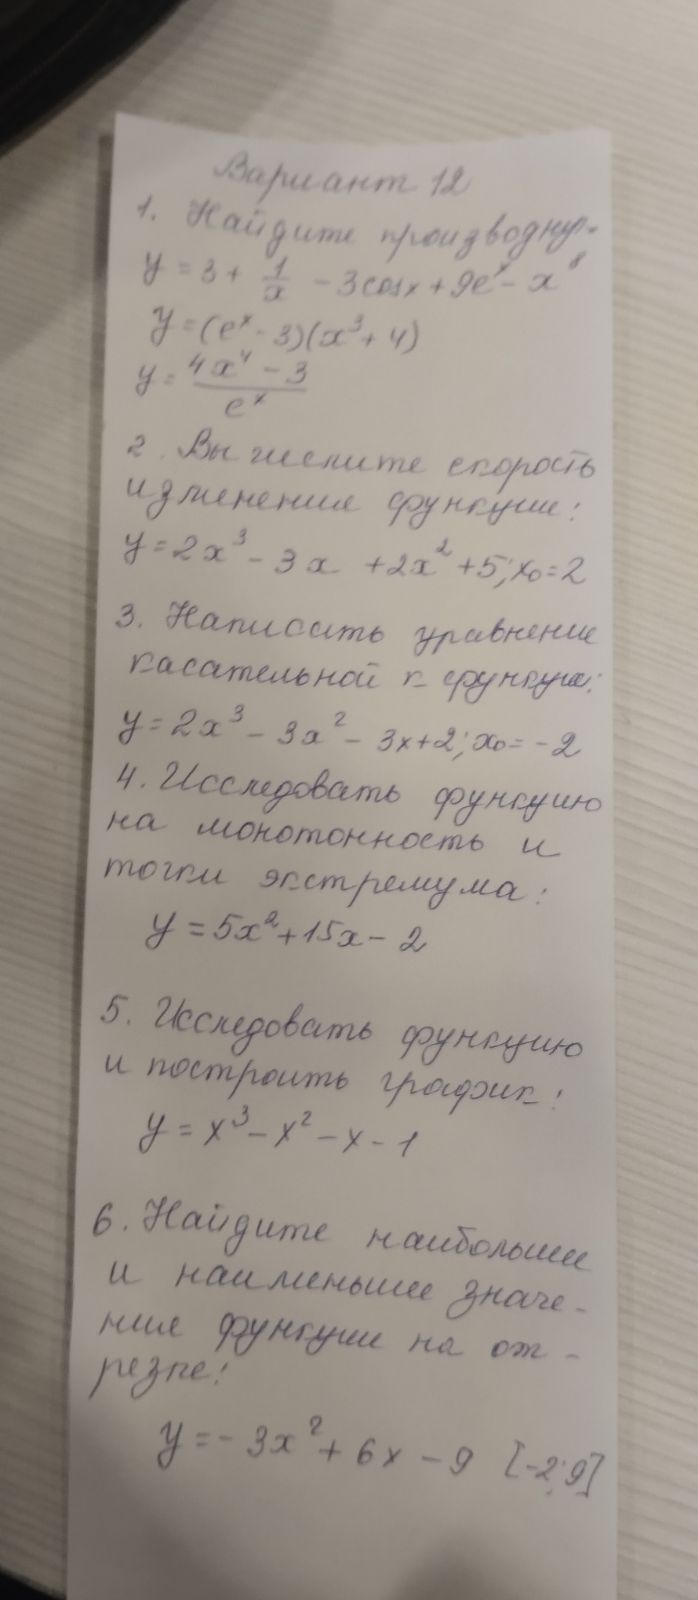 Вариант 12
1. Найдите производную
y = 3 + 1/x - 3cosx + 9e^x - x^8
y = (e^x - 3)(x^3 + 4)
y = (4x^4 - 3)/e^x
2. Вычислите скорость
изменения функции:
y = 2x^3 - 3x + 2x^2 + 5; x₀ = 2
3. Написать уравнение
касательной к функции:
y = 2x^3 - 3x^2 - 3x + 2; x₀ = -2
4. Исследовать функцию
на монотонность и
точки экстремума:
y = 5x^2 + 15x - 2
5. Исследовать функцию
и построить график:
y = x^3 - x^2 - x - 1
6. Найдите наибольшие
и наименьшее значе-
ние функции на от-
резке:
y = - 3x^2 + 6x - 9 [-2; 9]